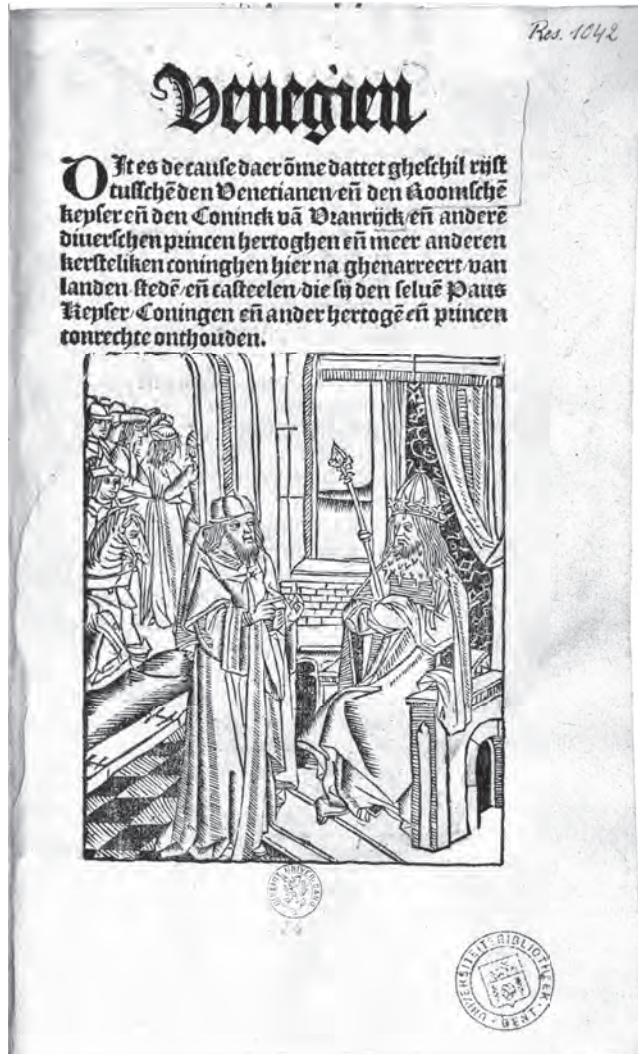 Res. 1042
Venegien
DIt es de cause daer õme dattet gheschil rijst
tusschẽ den Venetianen/ eñ den Roomschẽ
keyser eñ den Coninck vã Vranrijck/ eñ anderẽ
diuerschen princen hertoghen eñ meer anderen
kersteliken coninghen hier na ghenarreert/ van
landen stedẽ/ eñ casteelen/ die sij den seluẽ Paus
Keyser/ Coningen eñ ander hertogẽ eñ princen
tonrechte onthouden.
UNIVERSITEITSBIBLIOTHEEK
GENT